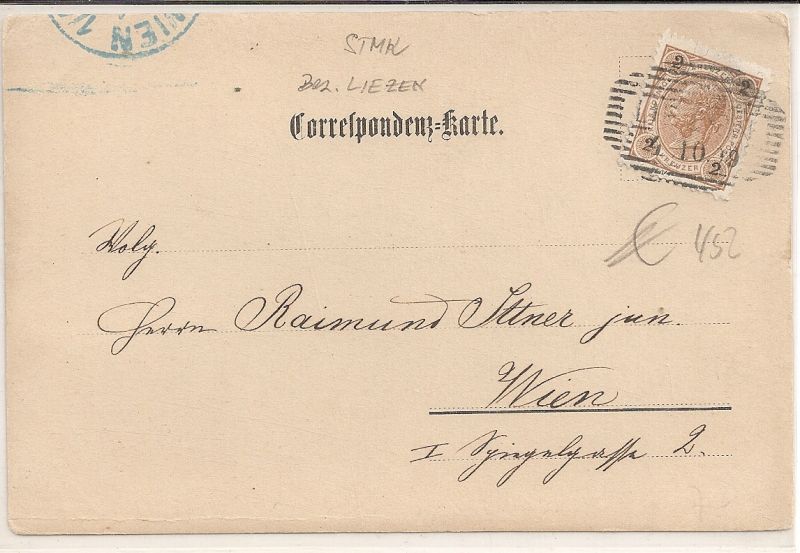 WIEN
STMK
Bez. LIEZEN
Correspondenz=Karte.
2 2
KREUZER
2 2
10
€ 452
Wolg.
Herrn Raimund Ittner jun.
Wien
I Spiegelgasse 2.